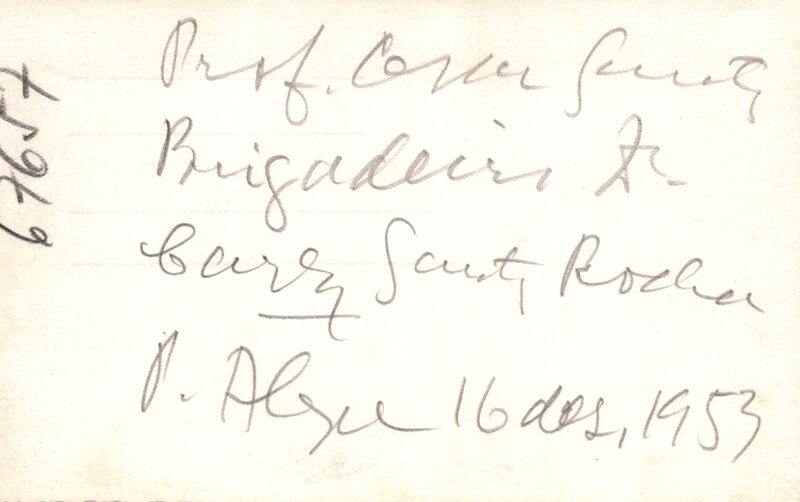 Prof. Cesar Santos
Brigadeiro Dr.
Santos Rocha
P. Alegre 16 dez, 1953
67657